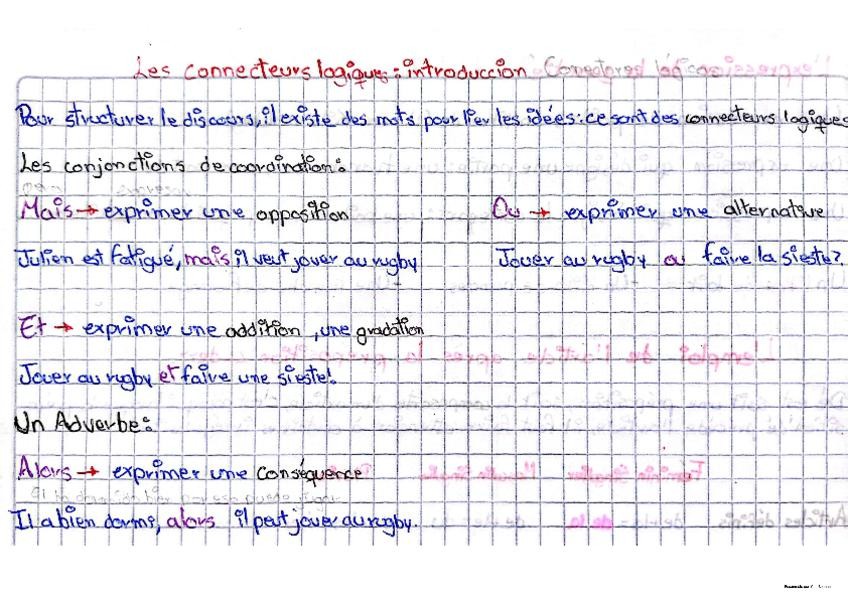 Les connecteurs logiques: introduccion Conectores
Pour structurer le discours, il existe des mots pour lier les idées: ce sont des connecteurs logiques
Les conjonctions de coordination:
Mais → exprimer une opposition
Ou → exprimer une alternative
Julien est fatigué, mais il veut jouer au rugby
Jouer au rugby ou faire la sieste?
Et → exprimer une addition, une gradation
Jouer au rugby et faire une sieste!
Un Adverbe:
Alors → exprimer une conséquence
Il a bien dormi, alors il peut jouer au rugby.